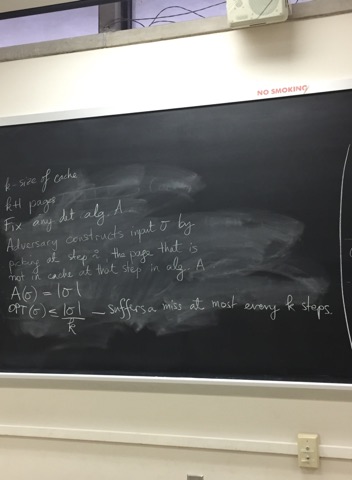 NO SMOKING
k - size of cache
k+1 pages
Fix any det alg. A
Adversary constructs input σ by
picking at step i, the page that is
not in cache at that step in alg. A
A(σ) = |σ|
OPT(σ) ≤ |σ|/k — suffers a miss at most every k steps.